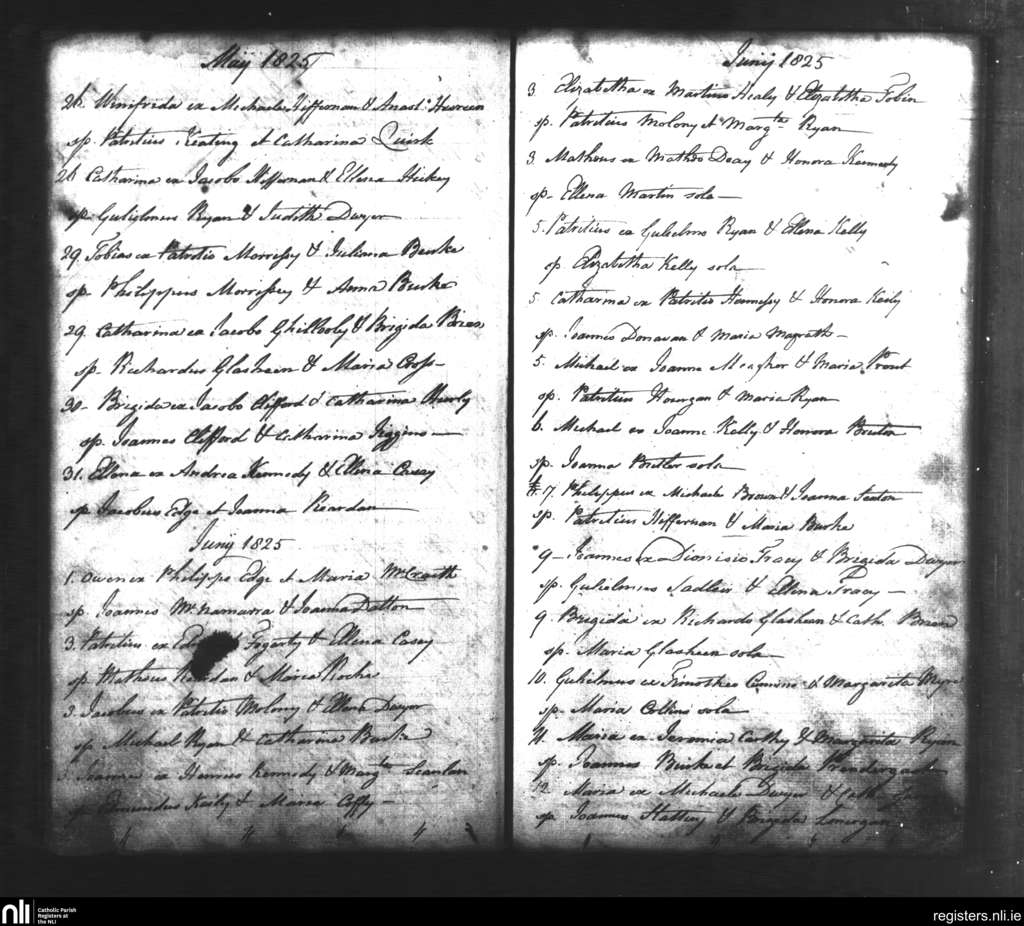 May 1825
26. Winifrida ex Michaele Heffernan & Anast:
sp. Patritius Keating et Catharina Quirk
26 Catharina ex Jacobo Heffernan & Ellena Hickey
sp. Gulielmus Ryan & Judith Dwyer
29. Tobias ex Patritio Morrissy & Juliana Burke
sp. Philippus Morrissey & Anna Burke
29. Catharina ex Jacobo & Brigida
sp. Richardus Glasheen & Maria Cross
30 Brigida ex Jacobo Clifford & Catharina Hurly
sp. Joannes Clifford & Catharina Higgins
31. Ellena ex Andrea Kennedy & Ellena Casey
sp Jacobus Edge et Joanna Reardan
Junij 1825
1. Owen ex Philippo Edge et Maria McCraith
sp. Joannes McNamarra & Joanna Dalton
3. Patritius ex Fogarty & Ellena Casey
sp Matheus Reardan & Maria Roche
3. Jacobus ex Patritio Molony & Ellena Dwyer
sp. Michael Ryan & Catharina Burke
Joanna ex Henrico Kennedy & Margta Scanlan
Edmundus Keily & Maria
Junij 1825
3 Elizabetha ex Martino Healy & Elizabetha Tobin
sp. Patritius Molony et Margta Ryan
3 Matheus ex Matheo Deay & Honora Kennedy
sp. Ellena Martin sola
5. Patritius ex Gulielmo Ryan & Ellena Kelly
sp Elizabetha Kelly sola
5 Catharina ex Patritio Hennessy & Honora Keily
sp. Joannes Donavan & Maria Magrath
5. Michael ex Joanne Meagher & Maria Prout
sp. Patritius & Maria Ryan
6. Michael ex Joanne Kelly & Honora Butler
sp. Joanna Butler sola
7. Philippus ex Michaele Brown & Joanna Sexton
sp. Patritius Heffernan & Maria Burke
9 Joannes ex Dionisio Tracy & Brigida Dwyer
sp. Gulielmus Sadleir & Ellena Tracy
9 Brigida ex Richardo Glasheen & Cath.
sp. Maria Glasheen sola
10. Gulielmus ex Timotheo & Margarita
sp. Maria Collins sola
11. Maria ex Jeremia Carthy & Margarita Ryan
sp. Joannes Burke et Brigida Prendergast
12 Maria ex Michaele Dwyer & Cath.
sp. Joannes & Brigida Lonergan
nli
Catholic Parish
Registers at
the NLI
registers.nli.ie